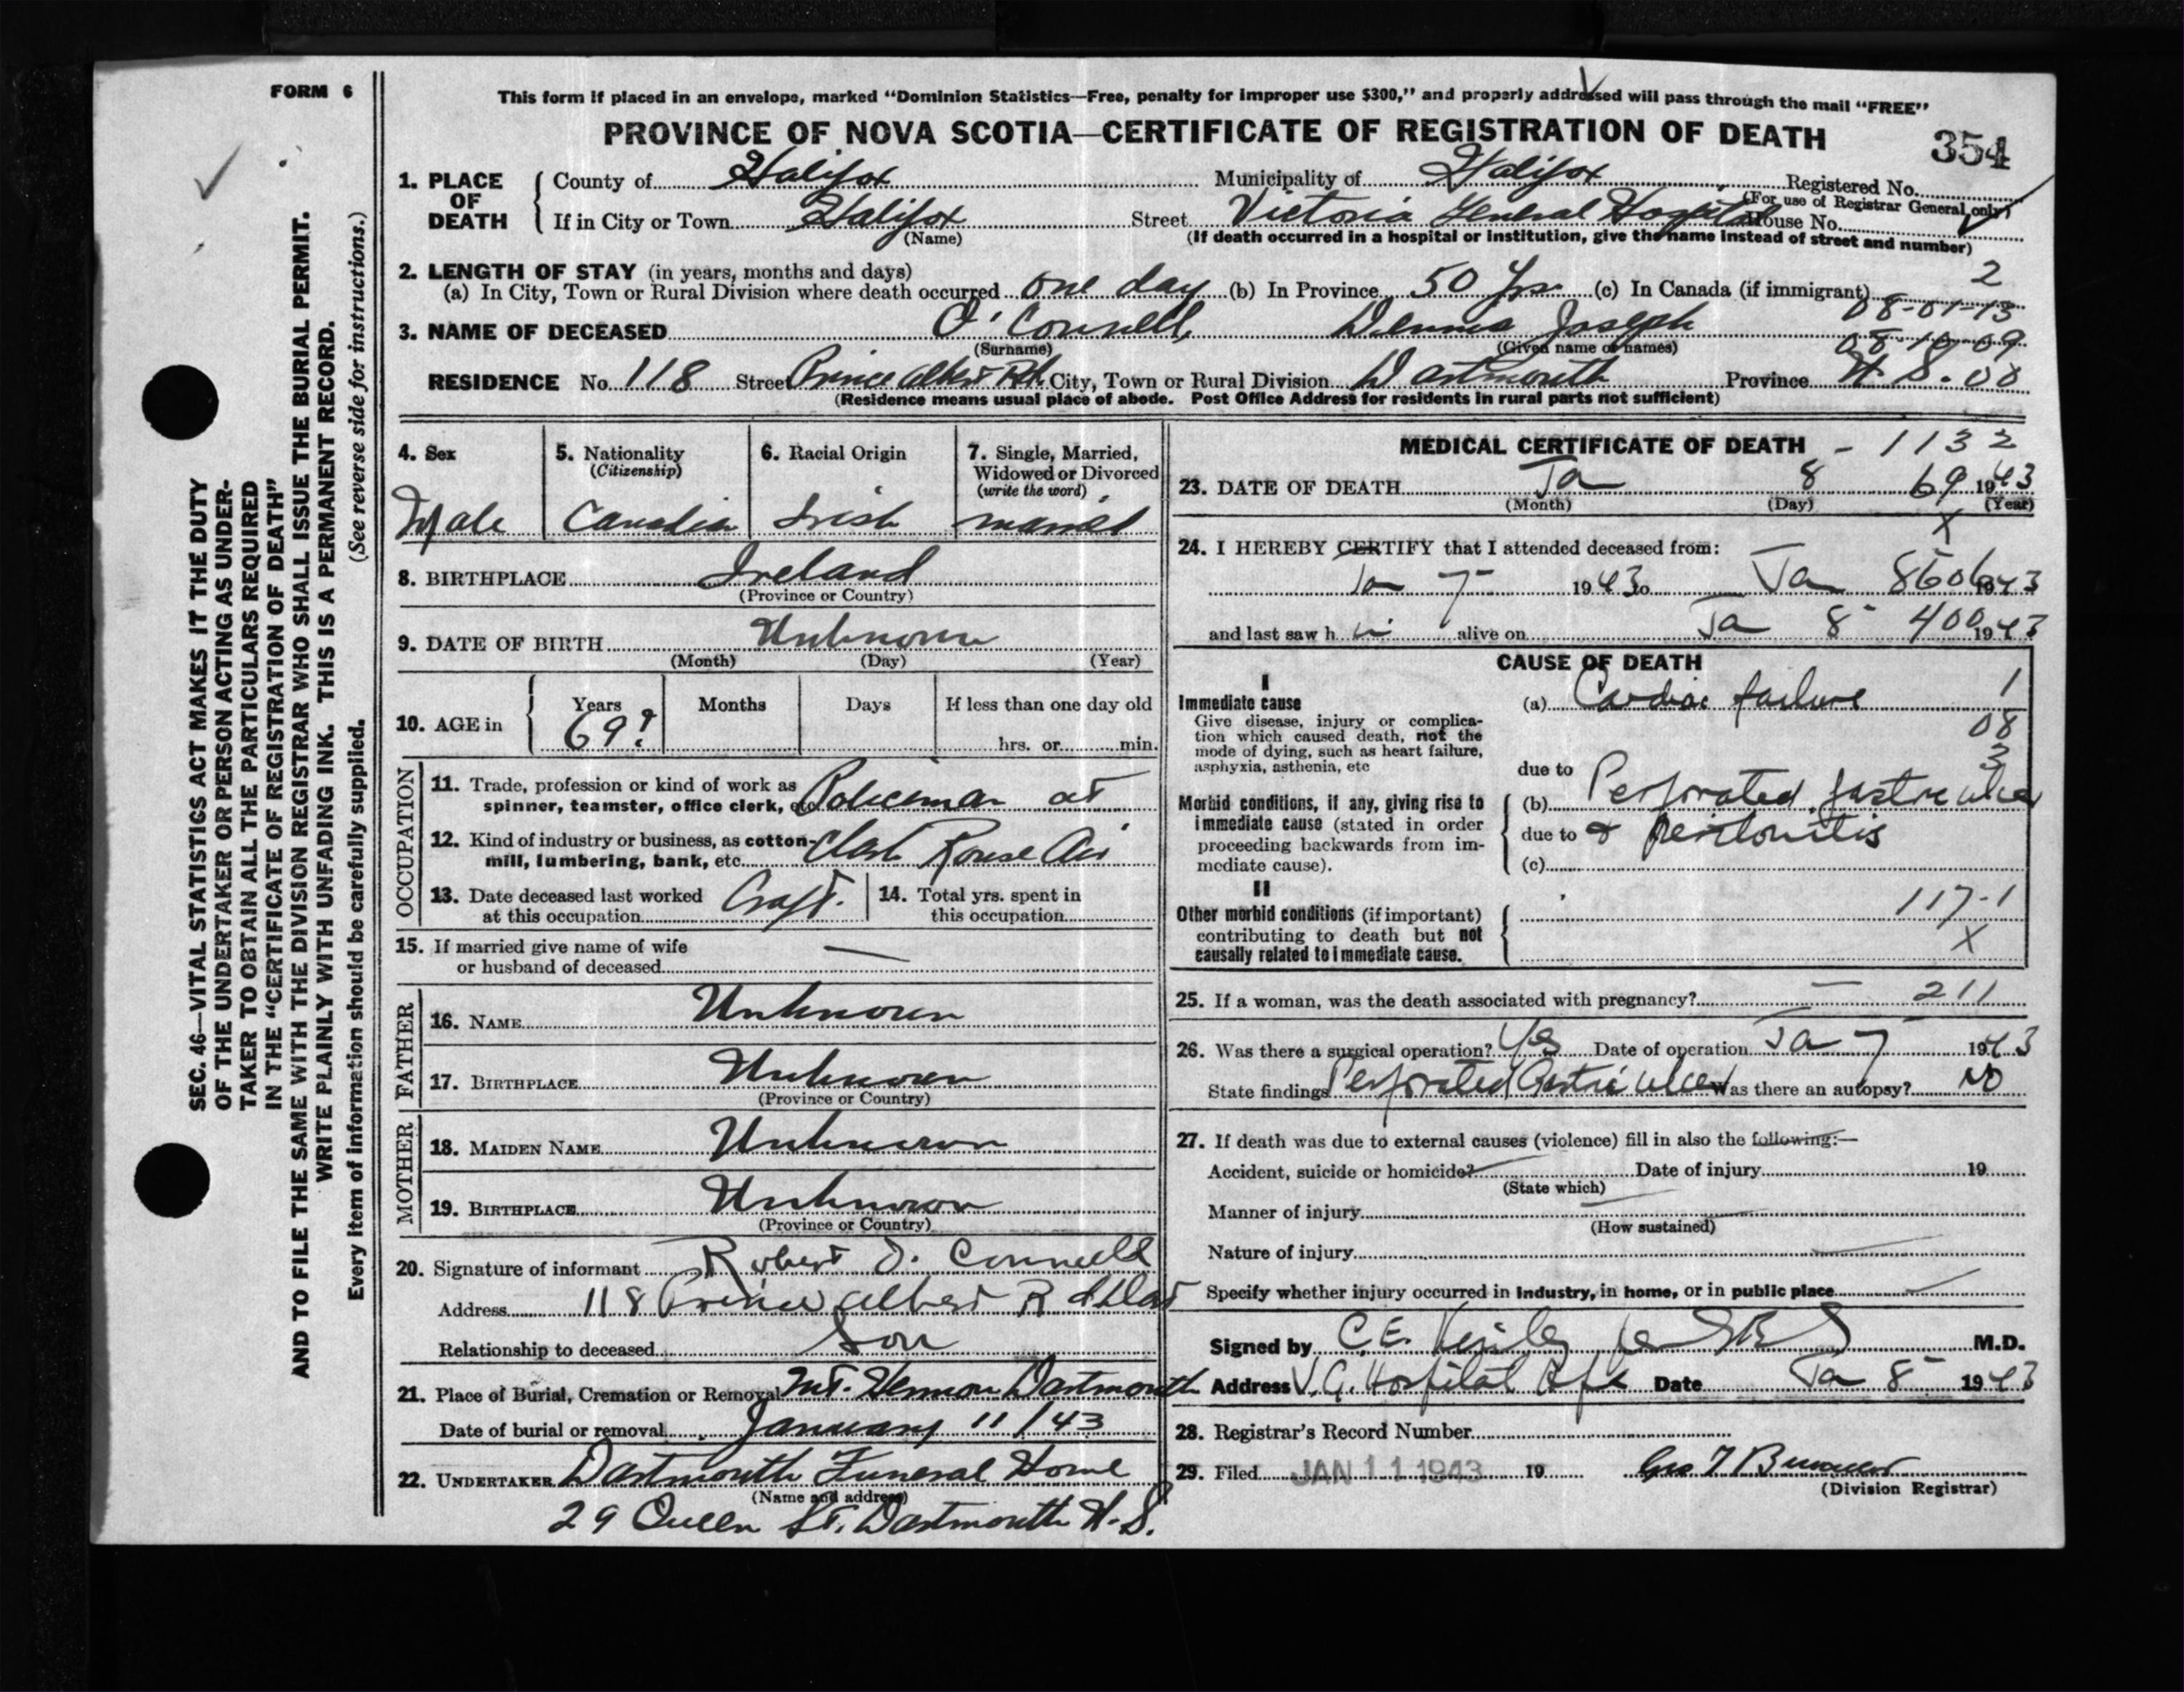 FORM 6
This form if placed in an envelope, marked “Dominion Statistics—Free, penalty for improper use $300,” and properly addressed will pass through the mail “FREE”
PROVINCE OF NOVA SCOTIA—CERTIFICATE OF REGISTRATION OF DEATH
354
1. PLACE OF DEATH
County of Halifax Municipality of Halifax Registered No.
(For use of Registrar General only)
If in City or Town Halifax Street Victoria General Hospital House No.
(Name) (If death occurred in a hospital or institution, give the name instead of street and number)
2. LENGTH OF STAY (in years, months and days) 2
(a) In City, Town or Rural Division where death occurred one day (b) In Province 50 Yrs (c) In Canada (if immigrant)
08-01-13
3. NAME OF DECEASED O'Connell, Dennis Joseph
(Surname) (Given name or names) 08-10-09
RESIDENCE No. 118 Street Prince Albert Rd. City, Town or Rural Division Dartmouth Province N.S. 00
(Residence means usual place of abode. Post Office Address for residents in rural parts not sufficient)
4. Sex
Male
5. Nationality
(Citizenship)
Canadian
6. Racial Origin
Irish
7. Single, Married,
Widowed or Divorced
(write the word)
married
8. BIRTHPLACE Ireland
(Province or Country)
9. DATE OF BIRTH Unknown
(Month) (Day) (Year)
10. AGE in
Years Months Days If less than one day old
69? hrs. or min.
OCCUPATION
11. Trade, profession or kind of work as
spinner, teamster, office clerk, etc. Policeman at
12. Kind of industry or business, as cotton-
mill, lumbering, bank, etc. Clark Rouse Air
13. Date deceased last worked
at this occupation Craft.
14. Total yrs. spent in
this occupation
15. If married give name of wife
or husband of deceased —
FATHER
16. NAME Unknown
17. BIRTHPLACE Unknown
(Province or Country)
MOTHER
18. MAIDEN NAME Unknown
19. BIRTHPLACE Unknown
(Province or Country)
20. Signature of informant Robert O. Connell
Address 118 Prince Albert Rd Dart
Relationship to deceased Son
21. Place of Burial, Cremation or Removal Mt. Hermon Dartmouth
Date of burial or removal January 11/43
22. UNDERTAKER Dartmouth Funeral Home
(Name and address)
29 Queen St. Dartmouth N.S.
MEDICAL CERTIFICATE OF DEATH - 1132
23. DATE OF DEATH Ja 8 69 1943
(Month) (Day) (Year)
X
24. I HEREBY CERTIFY that I attended deceased from:
Ja 7 1943 to Ja 8 1943
and last saw h im alive on Ja 8 400 1943
CAUSE OF DEATH
I
Immediate cause
Give disease, injury or complica-
tion which caused death, not the
mode of dying, such as heart failure,
asphyxia, asthenia, etc
(a) Cardiac failure 1
08
3
due to
Morbid conditions, if any, giving rise to
immediate cause (stated in order
proceeding backwards from im-
mediate cause).
(b) Perforated gastric ulcer
due to & peritonitis
(c)
II
Other morbid conditions (if important)
contributing to death but not
causally related to immediate cause.
117-1
X
25. If a woman, was the death associated with pregnancy? — 211
26. Was there a surgical operation? Yes Date of operation Ja 7 1943
State findings Perforated Gastric ulcer Was there an autopsy? No
27. If death was due to external causes (violence) fill in also the following:—
Accident, suicide or homicide? Date of injury 19
(State which)
Manner of injury
(How sustained)
Nature of injury
Specify whether injury occurred in industry, in home, or in public place
Signed by C.E. M.D.
Address V.G. Hospital Hfx Date Ja 8 1943
28. Registrar's Record Number
29. Filed JAN 11 1943 19
(Division Registrar)
SEC. 46—VITAL STATISTICS ACT MAKES IT THE DUTY
OF THE UNDERTAKER OR PERSON ACTING AS UNDER-
TAKER TO OBTAIN ALL THE PARTICULARS REQUIRED
IN THE “CERTIFICATE OF REGISTRATION OF DEATH”
AND TO FILE THE SAME WITH THE DIVISION REGISTRAR WHO SHALL ISSUE THE BURIAL PERMIT.
WRITE PLAINLY WITH UNFADING INK. THIS IS A PERMANENT RECORD.
Every item of information should be carefully supplied. (See reverse side for instructions.)